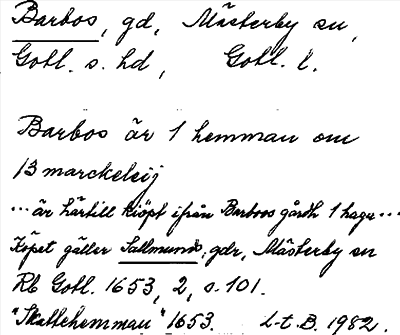 Barbos, gd, Mästerby sn,
Gotl. s. hd, Gotl. l.
Barbos är 1 hemman om
13 marckeleij
... är härtill kiöpt ifrån Barboos gårdh 1 hage ...
Köpet gäller Sallmunds, gdr, Mästerby sn
Rb Gotl. 1653, 2, s. 101.
"Skattehemman" 1653. L-t. B. 1982.